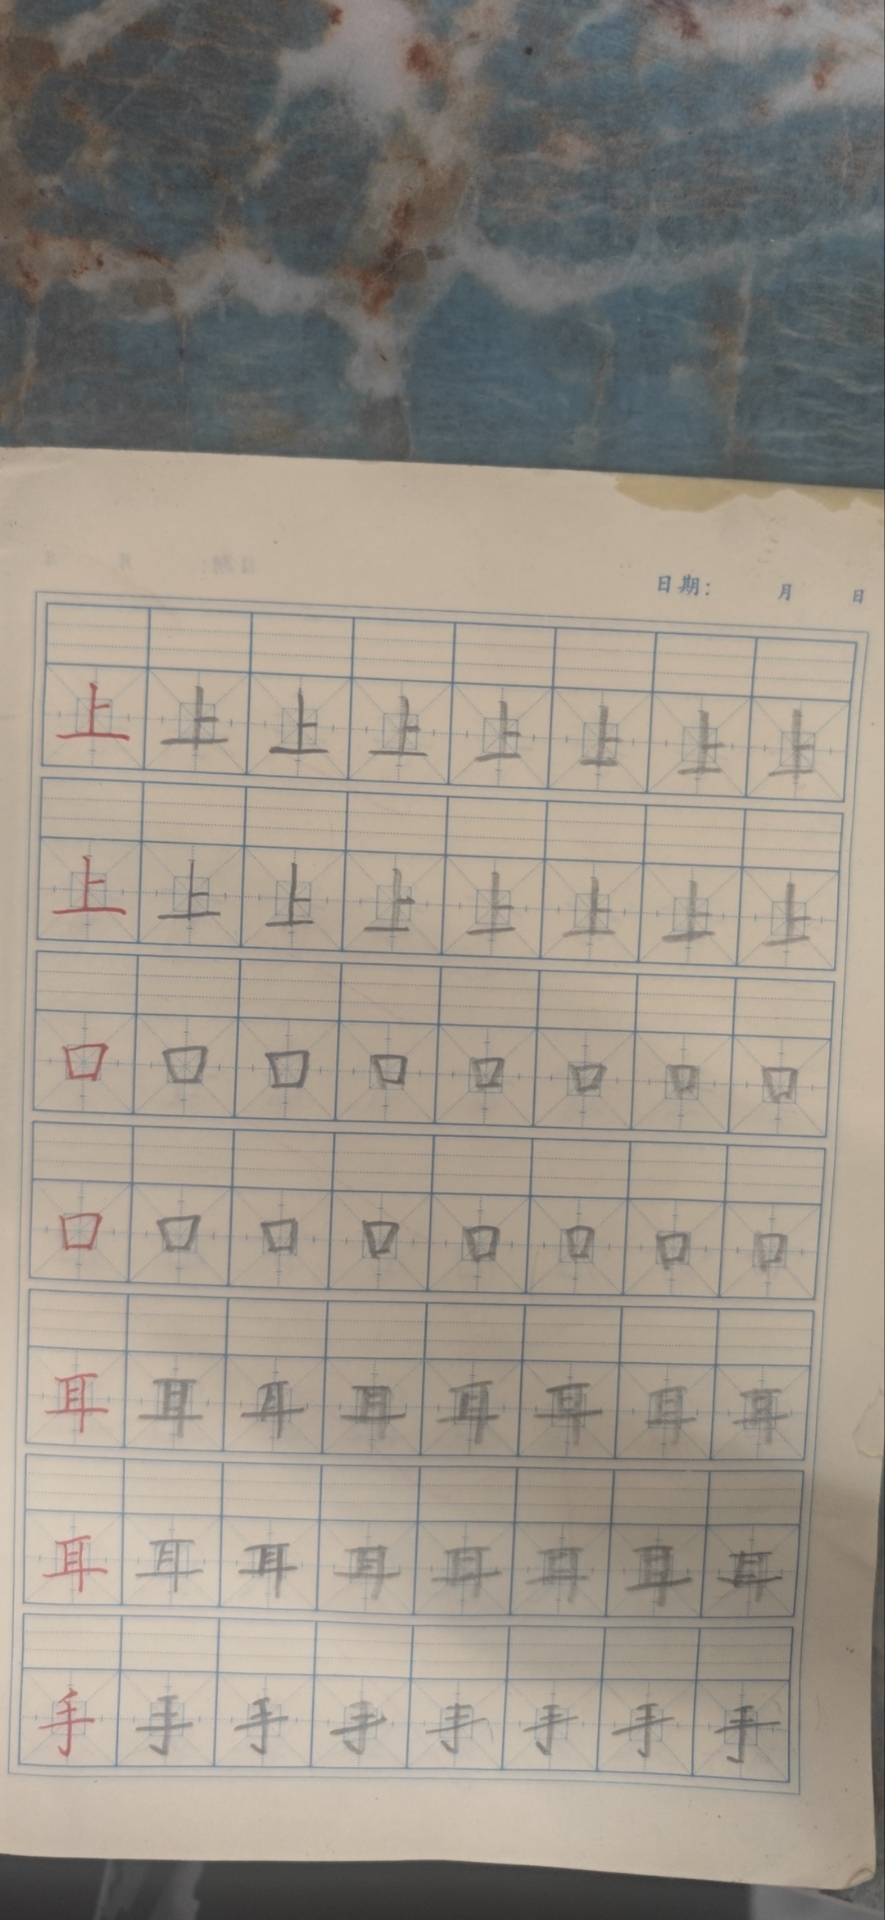 日期： 月 日
上 上 上 上 上 上 上 上
上 上 上 上 上 上 上 上
口 口 口 口 口 口 口 口
口 口 口 口 口 口 口 口
耳 耳 耳 耳 耳 耳 耳 耳
耳 耳 耳 耳 耳 耳 耳 耳
手 手 手 手 手 手 手 手